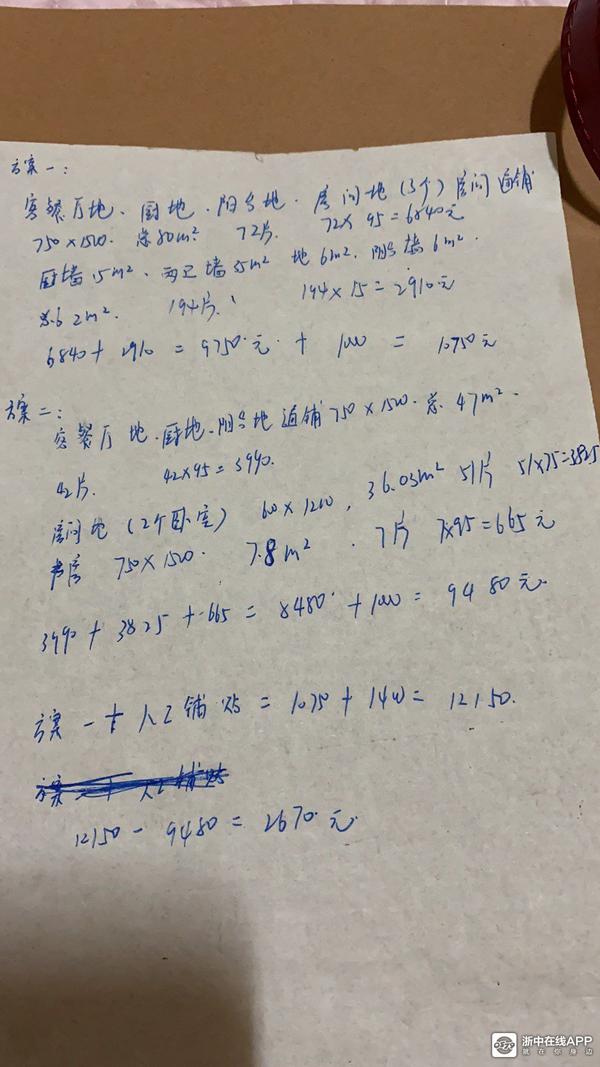 方案一:
客餐厅地、厨地、阳台地、房间地(3个)房间通铺
750×1500. 总80m² 72片. 72×95=6840元
厨墙15m²、两卫墙35m² 地6m². 阳台墙6m².
总62m². 194片. 194×15=2910元
6840+2910=9750元+1000=10750元
方案二:
客餐厅地.厨地.阳台地通铺750×1500.总47m².
42片. 42×95=3990.
房间地(2个卧室) 600×1200, 36.03m² 51片 51×75=3825
书房 750×1500. 7.8m². 7片 7×95=665元
3990+3825+665=8480+1000=9480元.
方案一 人工铺贴=1075+1400=12150.
12150-9480=2670元.
浙中在线APP
就在你身边